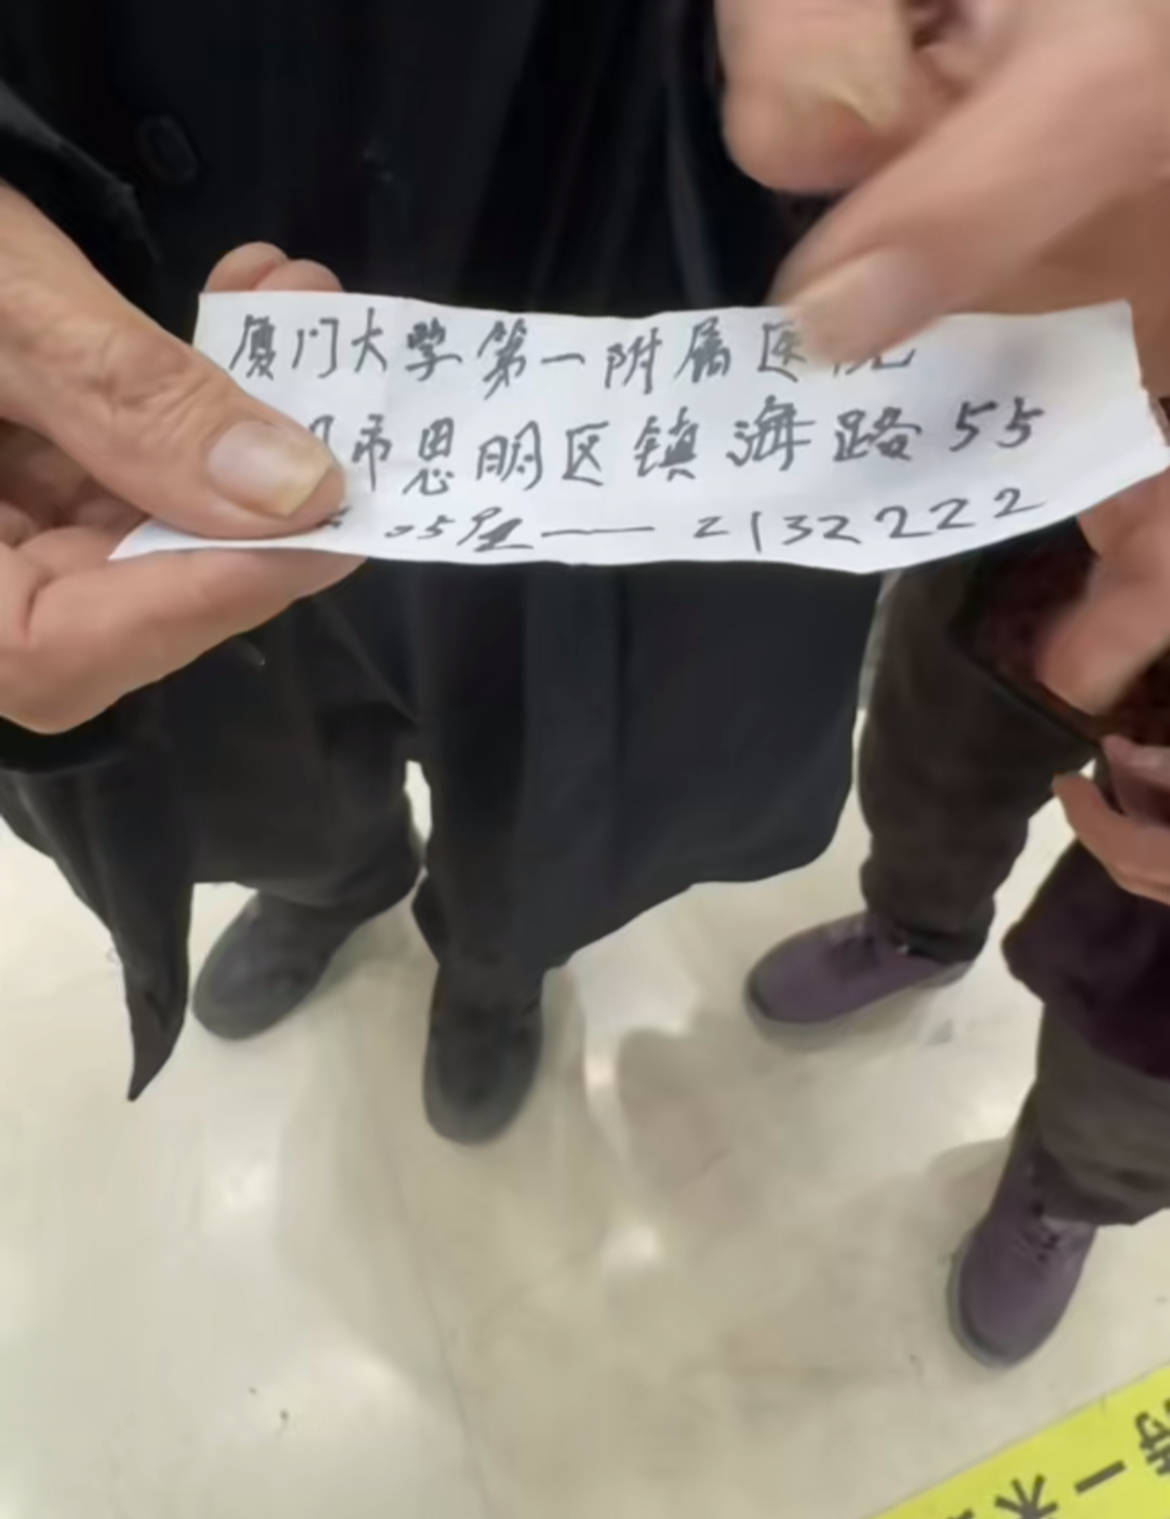 厦门大学第一附属医院
门市思明区镇海路55
2132222
一米